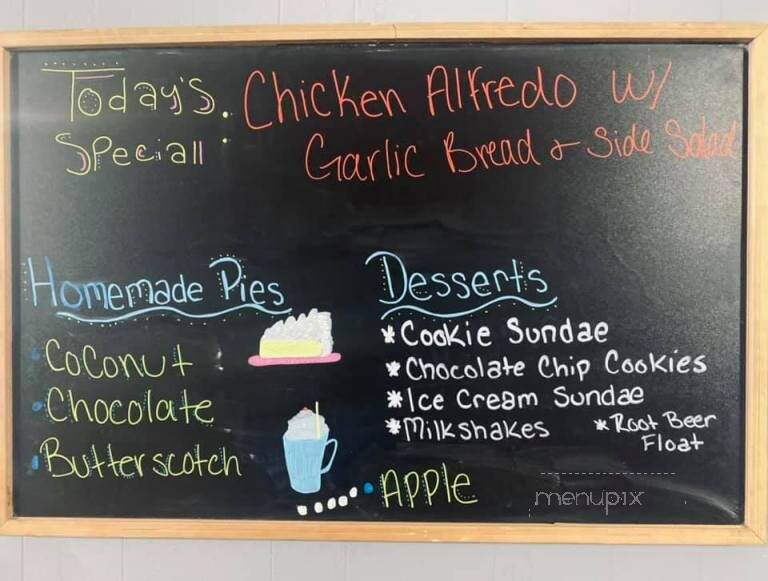 Today's. Chicken Alfredo w/
Special: Garlic Bread & Side Salad
Homemade Pies
• Coconut
• Chocolate
• Butterscotch
• Apple
Desserts
* Cookie Sundae
* Chocolate Chip Cookies
* Ice Cream Sundae
* Milkshakes * Root Beer
Float
menupix